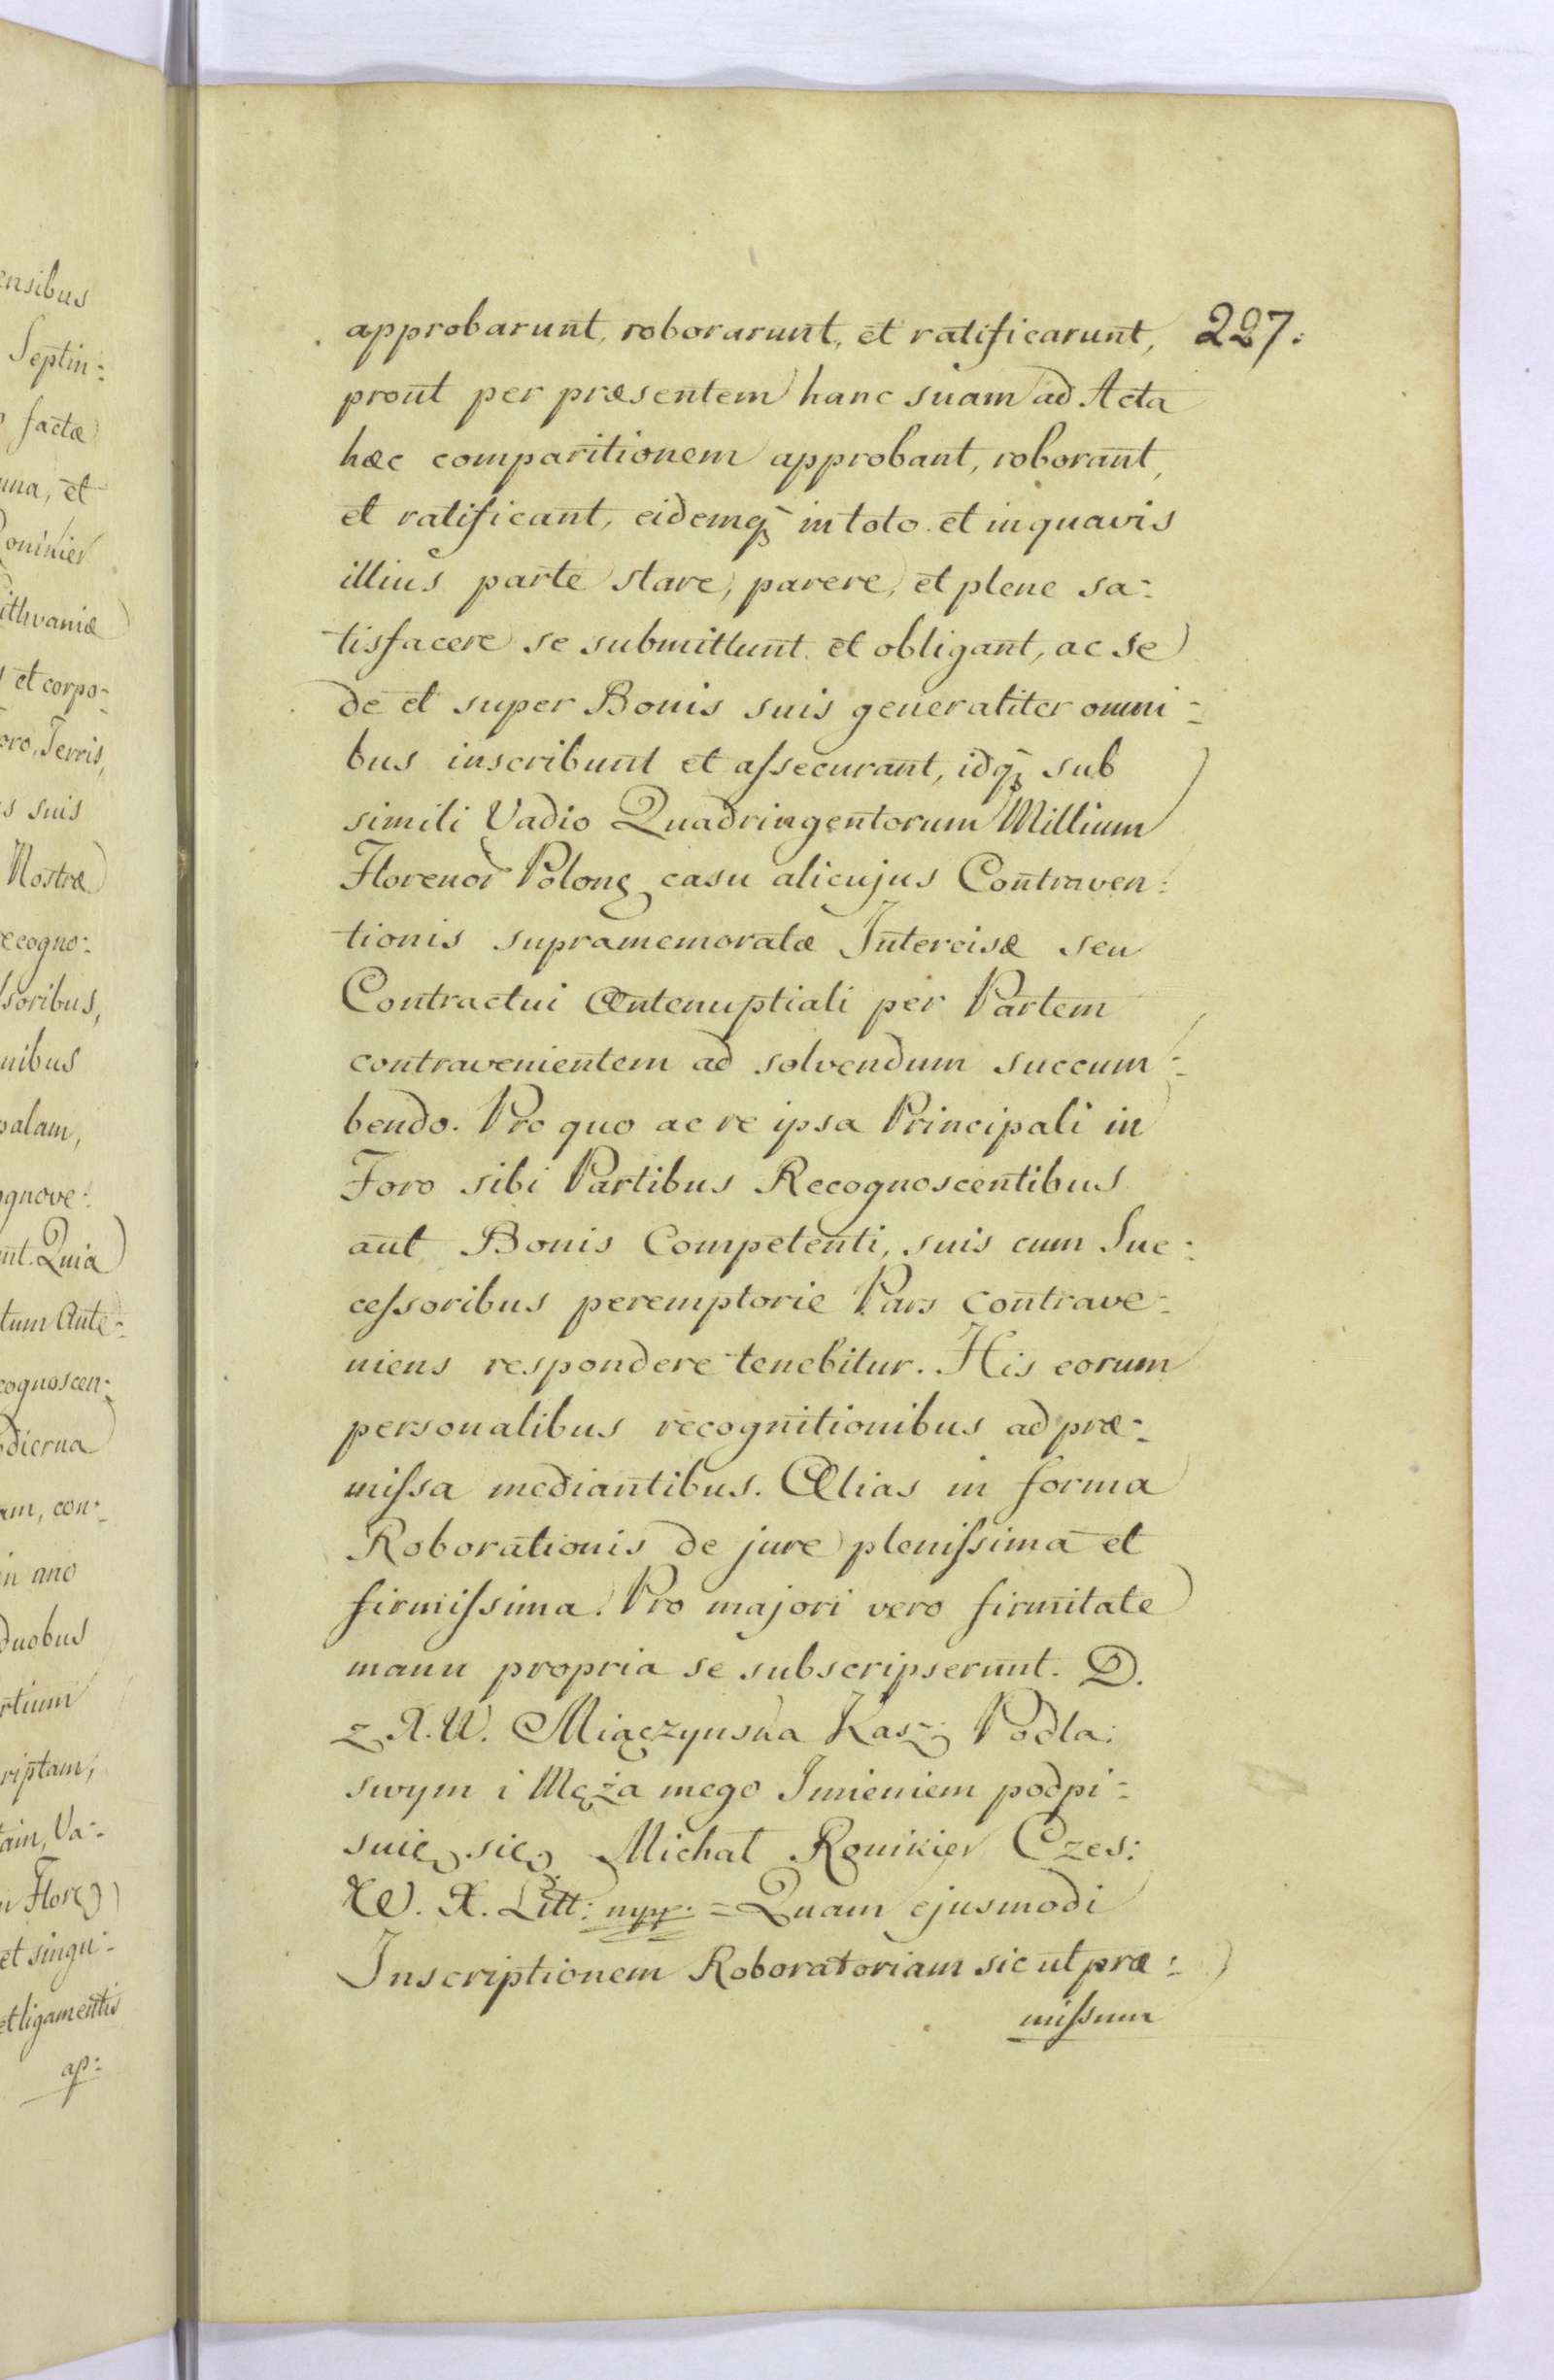 ensibus
Septin:
factæ
una, et
Ronikier
ithvaniæ
et corpo-
oro, Terris,
s suis
Nostræ
recogno-
soribus,
nibus
palam,
gnove:
nt. Quia
tum Ante-
cognoscen-
dierna
am, con-
in ano
duobus
rtium
riptam,
tam, Va-
Flor
et singu-
et ligamentis
ap:
approbarunt, roborarunt, et ratificarunt, 227:
prout per præsentem hanc suam ad Acta
hæc comparitionem approbant, roborant,
et ratificant, eidemq; in toto et in quavis
illius parte stare, parere, et plene sa-
tisfacere se submittunt et obligant, ac se
de et super Bonis suis generaliter omni-
bus inscribunt et assecurant, idq; sub
simili Vadio Quadringentorum Millium
Florenor Polong casu alicujus Contraven:
tionis supramemoratæ Intercisæ seu
Contractui Antenuptiali per Partem
contravenientem ad solvendum succum-
bendo. Pro quo ac re ipsa Principali in
Foro sibi Partibus Recognoscentibus
aut Bonis Competenti, suis cum Suc-
cessoribus peremptorie Pars contrave-
niens respondere tenebitur. His eorum
personalibus recognitionibus ad præ-
missa mediantibus. Alias in forma
Roborationis de jure plenissima et
firmissima. Pro majori vero firmitate
manu propria se subscripserunt. D.
z X. W. Miączynska Kasz: Podla:
swym i Męża mego Imieniem podpi-
suię się Michał Ronikier Czes:
W. X. Litt: mpp. = Quam ejusmodi
Inscriptionem Roboratoriam sic ut præ-
missum